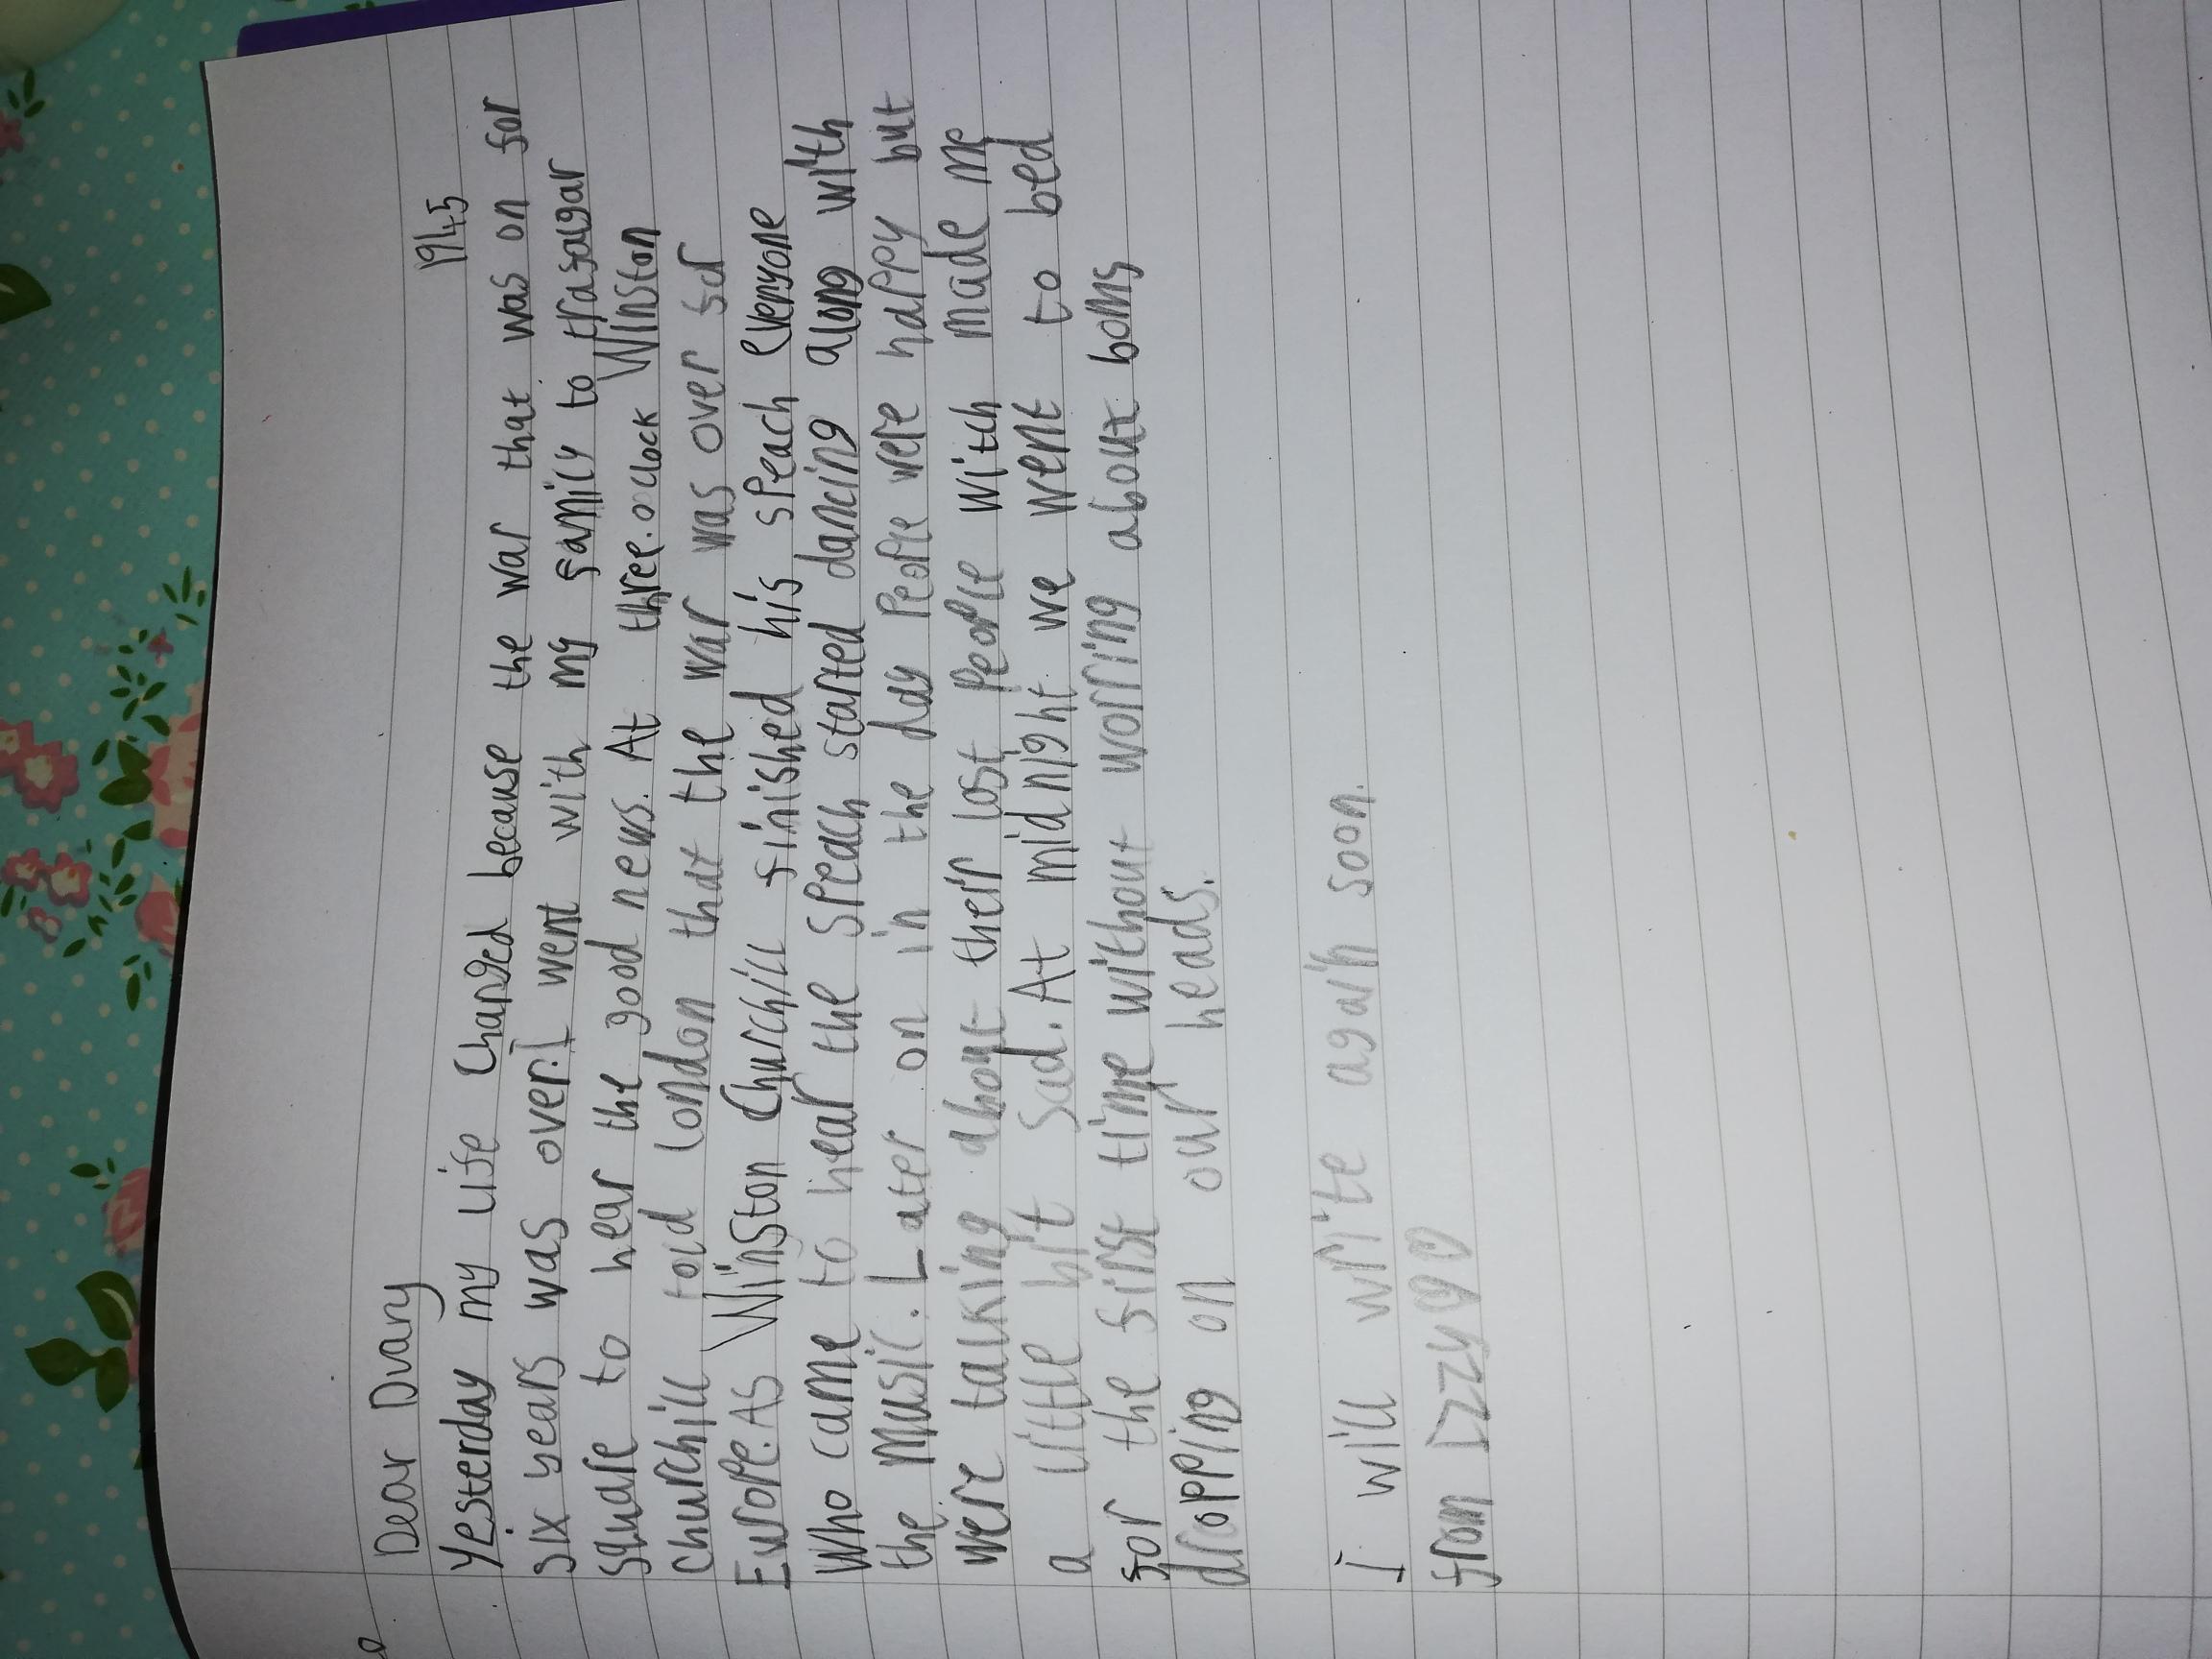 1945
Dear Diary
Yesterday my life changed because the war that was on for
six years was over. I went with my family to trafalgar
square to hear the good news. At three.oclock Winston
churchill told london that the war was over for
Europe. As Winston Churchill finished his speach everyone
Who came to hear the speach started dancing along with
the music. Later on in the day people were happy but
were talking about their lost people with made me
a little bit sad. At midnight we went to bed
for the first time without worring about boms
dropping on our heads.
I will write again soon.
from Izzy